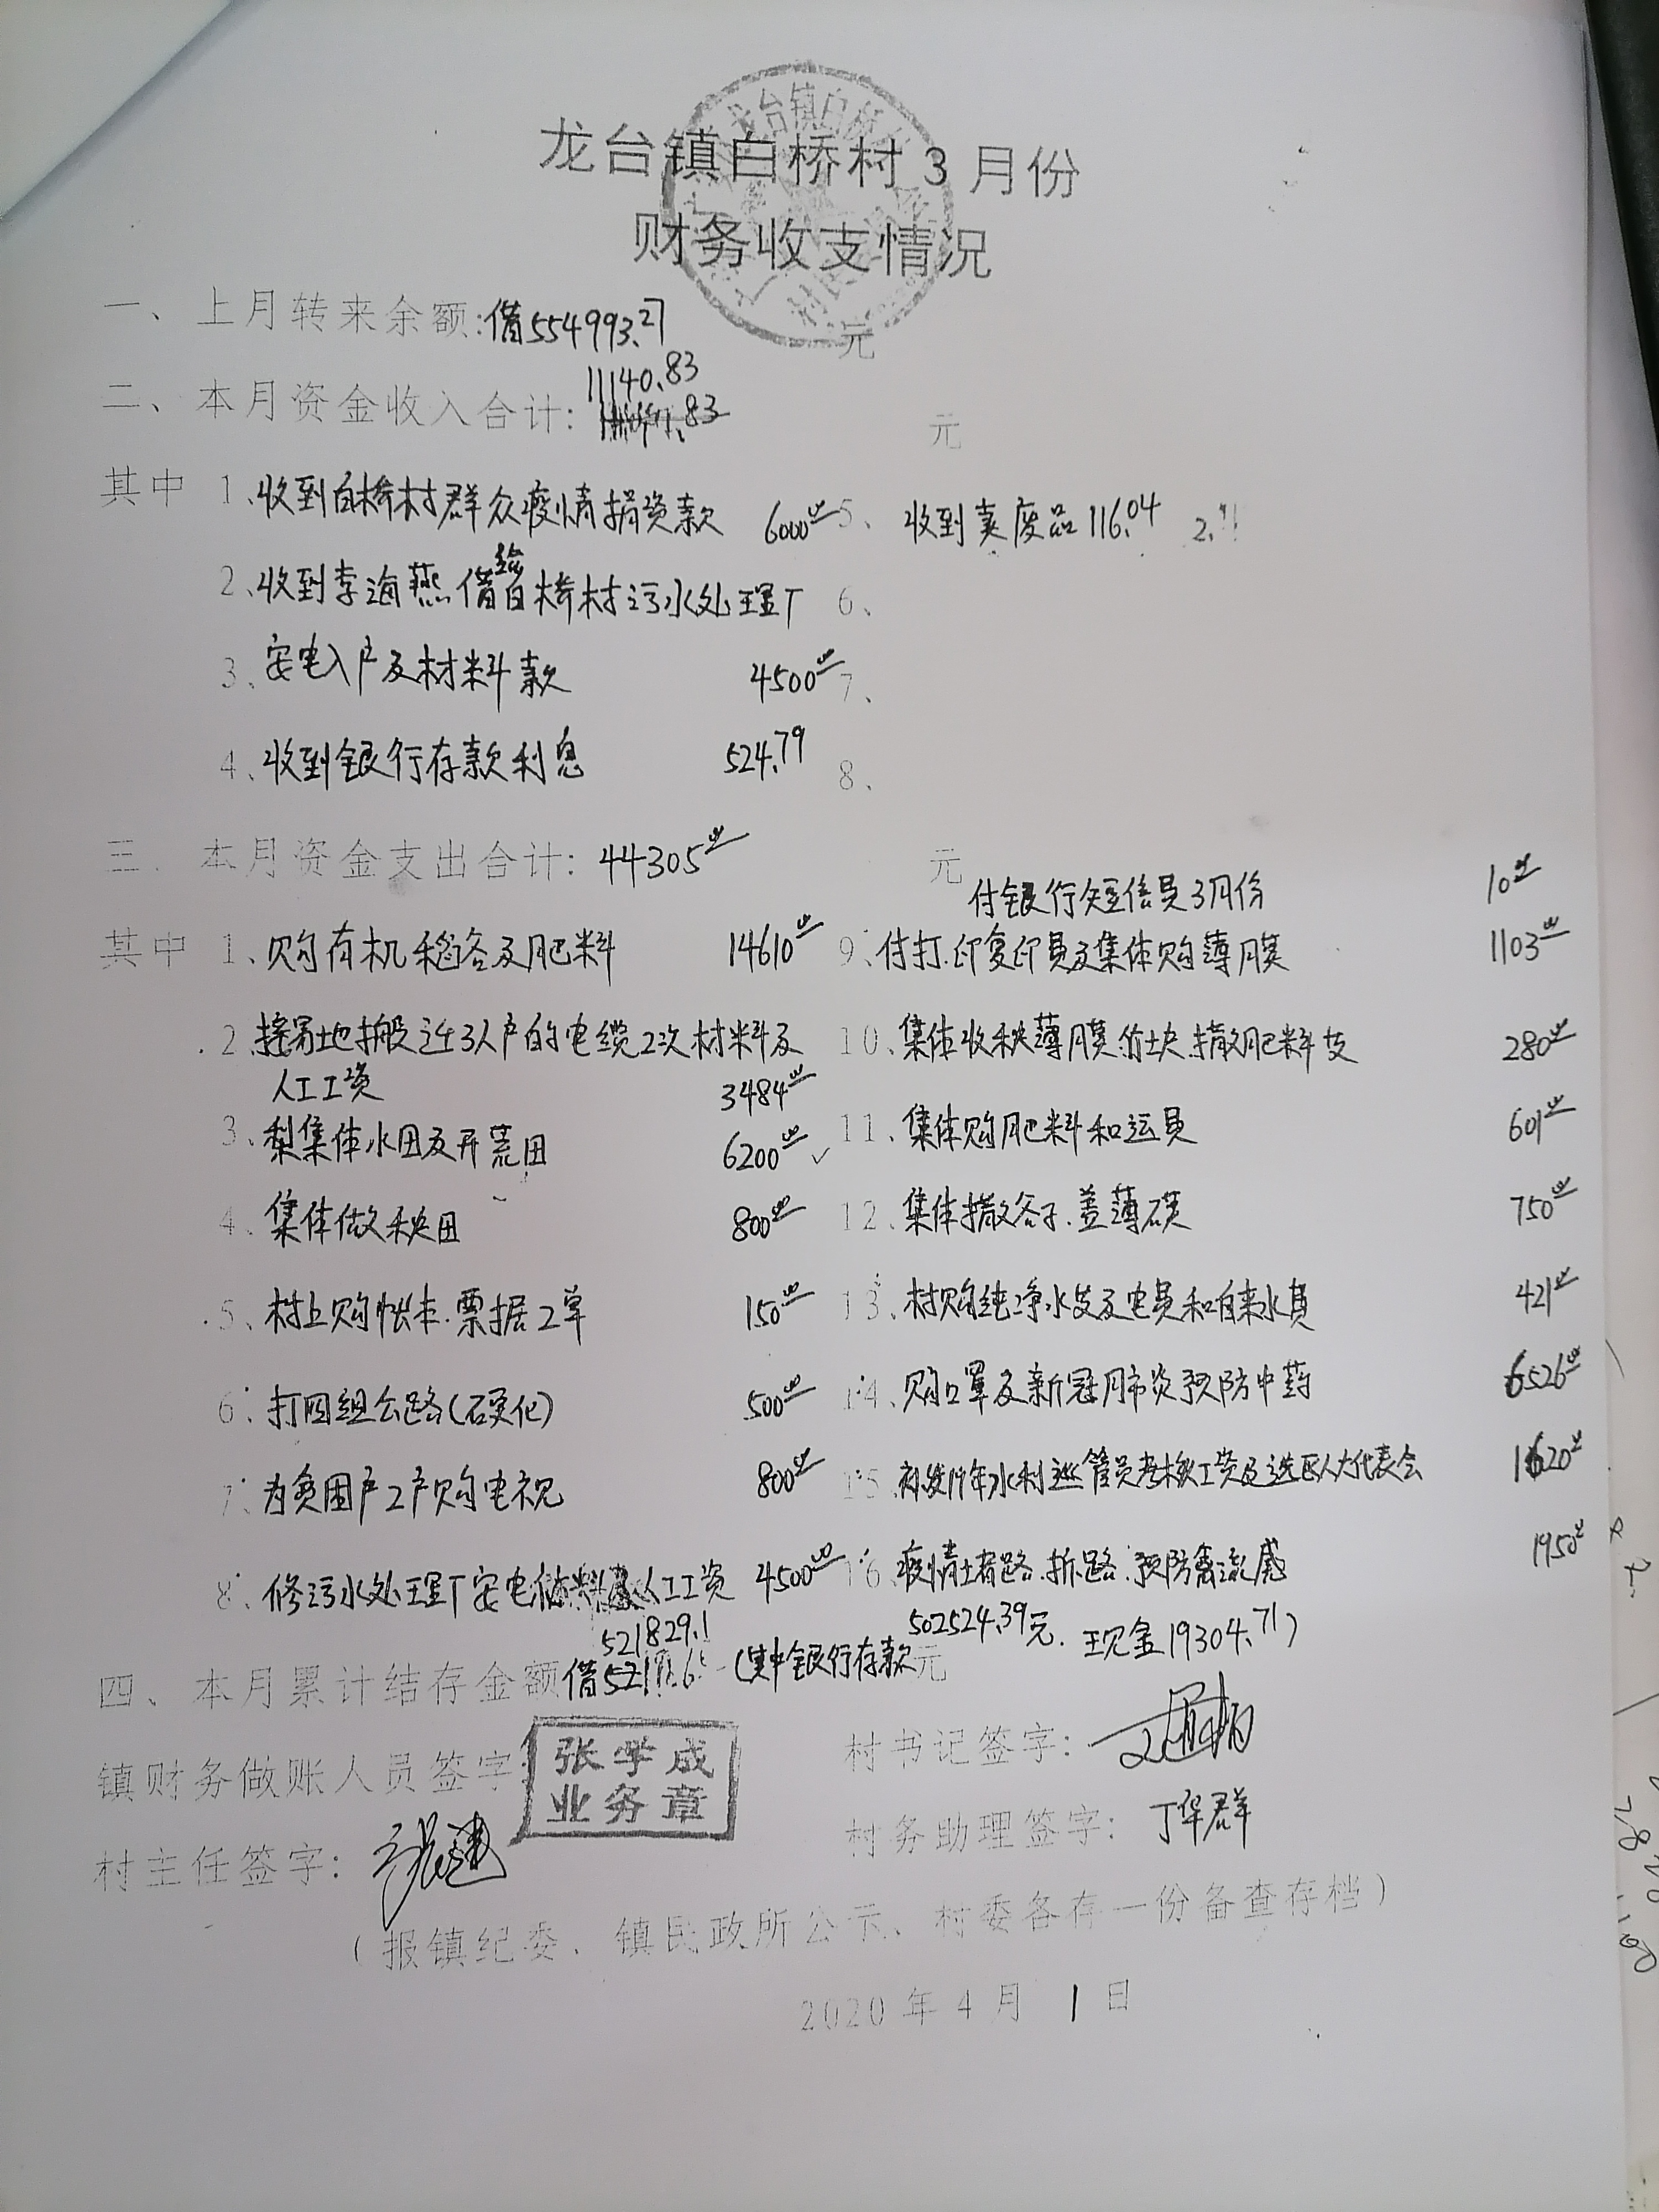 龙台镇白桥村3月份
财务收支情况
一、上月转来余额:借554993.27元
11140.83
二、本月资金收入合计: 元
其中 1、收到白桥村群众疫情捐资款 6000 5、收到卖废品116.04
2、收到李海燕借给白桥村污水处理厂 6、
3、安电入户及材料款 4500 7、
4、收到银行存款利息 524.79 8、
三、本月资金支出合计:44305元
付银行短信费3月份 10
其中 1、购有机稻谷及肥料 14610 9、付打.印复印费及集体购薄膜 1103
2、接易地搬迁3人户的电缆2次材料及 10、集体收秧薄膜 撒肥料支 280
人工工资 3484
3、犁集体水田及开荒田 6200 11、集体购肥料和运费 601
4、集体做秧田 800 12、集体撒谷子.盖薄膜 750
5、村上购帐本.票据2单 150 13、村购纯净水支及电费和自来水费 421
6、打四组公路(硬化) 500 14、购口罩及新冠肺炎预防中药 6526
7、为贫困户2户购电视 800 15、补发19年水利巡管员考核工资及选区人大代表会 1620
8、修污水处理厂安电材料及人工工资 4500 16、疫情堵路.拆路.预防禽流感 1950
521829.1 502524.39元.现金19304.71)
四、本月累计结存金额借 (其中银行存款 元
镇财务做账人员签字: 张学成 村书记签字:
业务章
村主任签字: 村务助理签字:丁华群
(报镇纪委、镇民政所公示、村委各存一份备查存档)
2020年4月1日